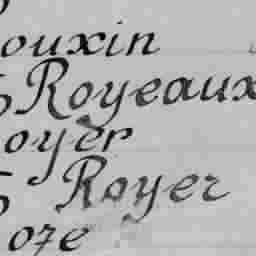 ouxin
Royeaux
oyer
Royer
oze